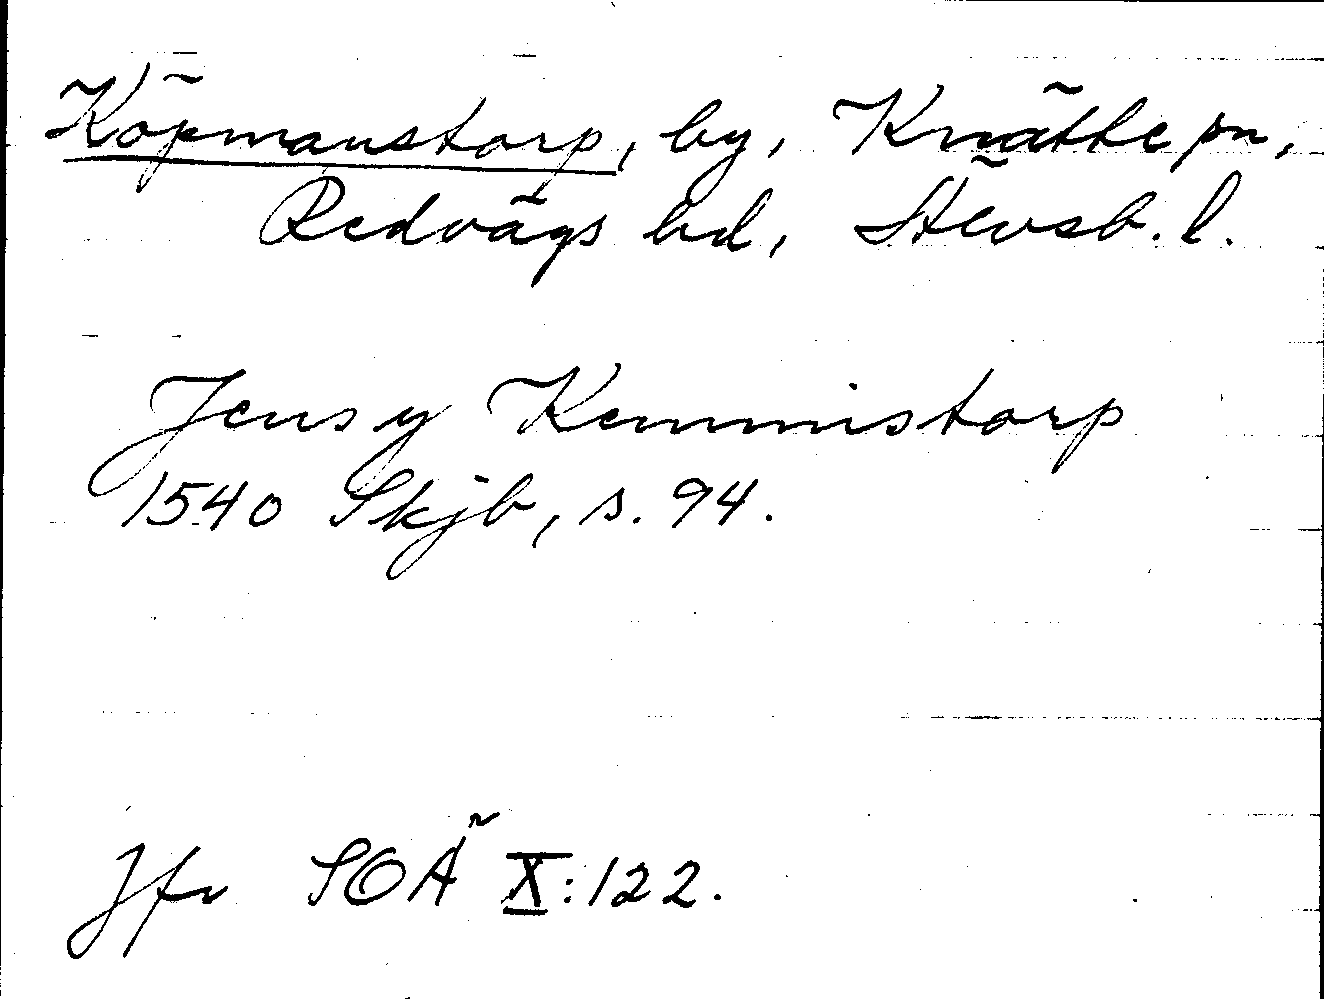 Köpmanstorp, by, Knätte sn,
Redvägs hd, Älvsb. l.
Jens y Kemmistorp
1540 Skjb, s. 94.
Jfr SOÄ X:122.